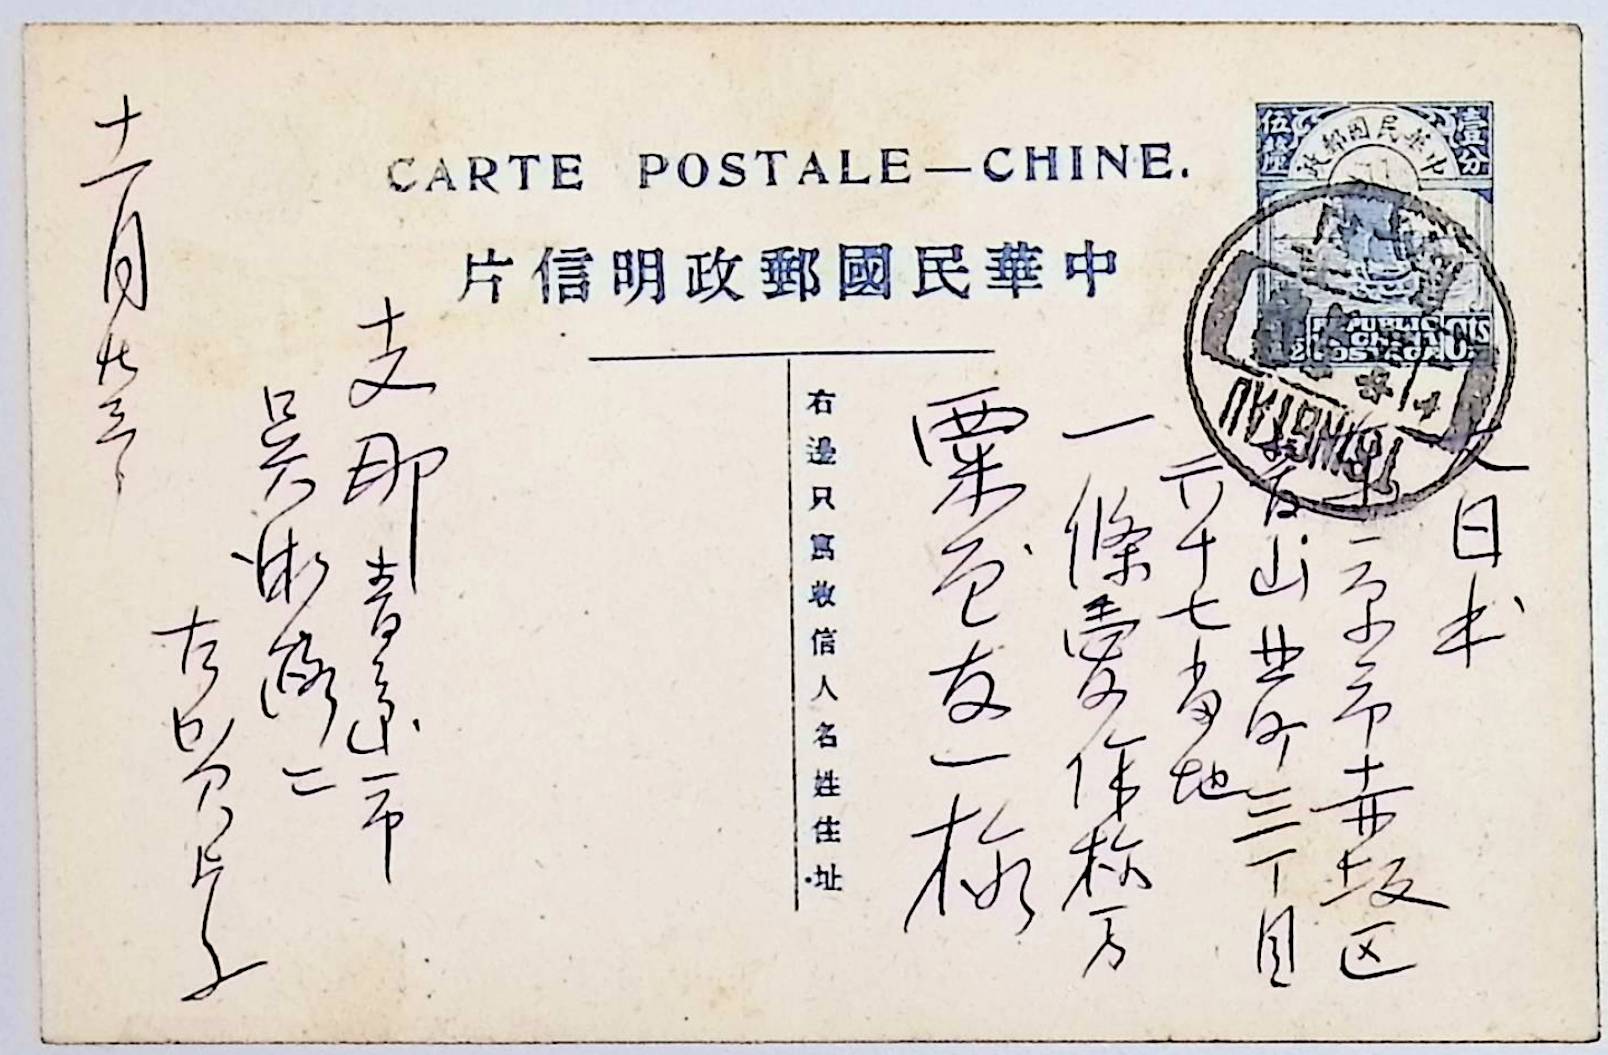 CARTE POSTALE—CHINE.
中華民國郵政明信片
中華民國郵政
壹分
伍釐
REPUBLIC
CHINA
POSTAGE
Cts
TSINGTAU
右邊只寫收信人名姓住址
大日本
東京市赤坂区
青山北町三丁目
六十七番地
一條愛作様方
粟屋友一様
支那青島市
呉淞路二
古賀
十一月廿三